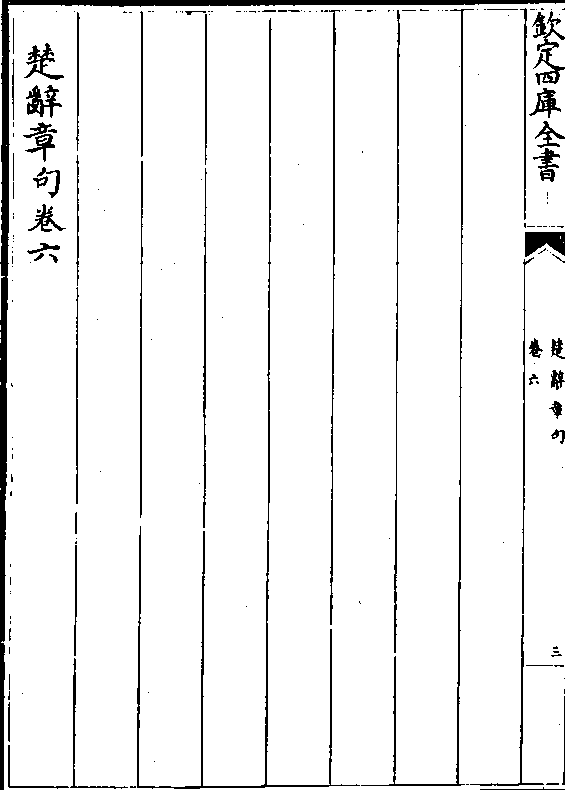 欽定四庫全書
楚辭章句
卷六
三
楚辭章句卷六